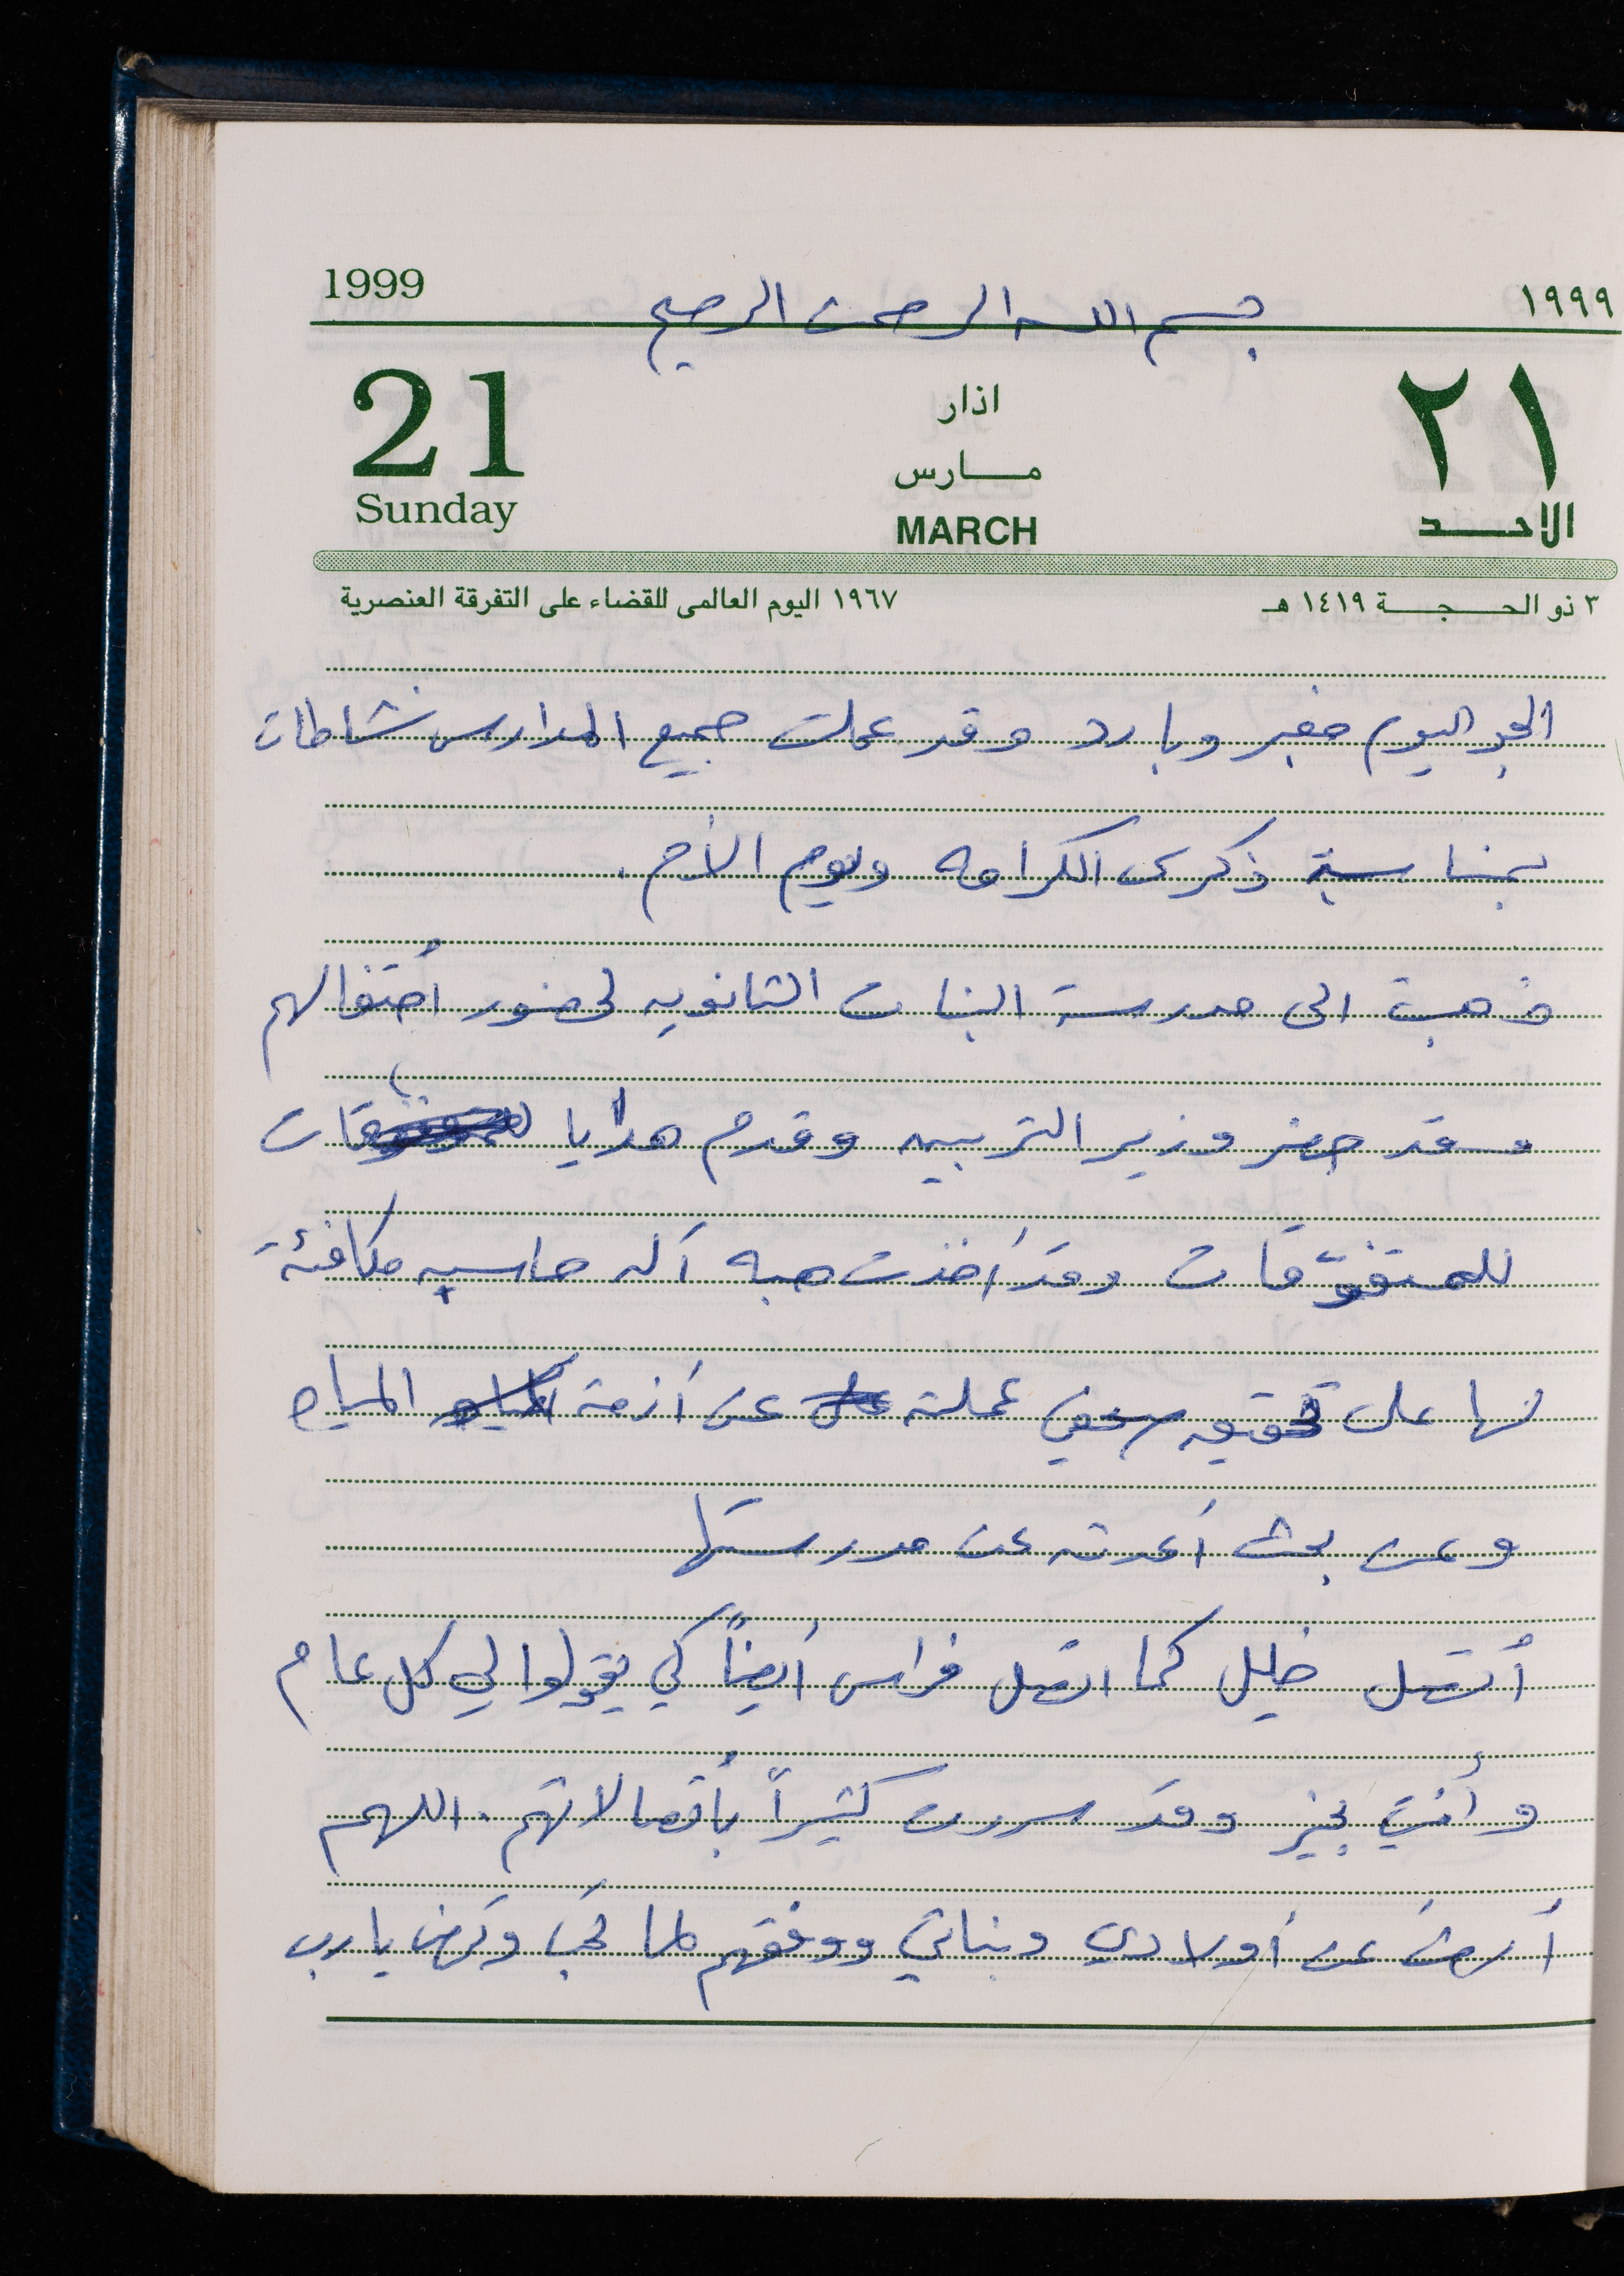 1999
١٩٩٩
بسم الله الرحمن الرحيم
21
Sunday
اذار
مارس
MARCH
٢١
الاحد
٣ ذو الحجة ١٤١٩ هـ
١٩٦٧ اليوم العالمى للقضاء على التفرقة العنصرية
الجو اليوم مغبر وبارد وقد عملت جميع المدارس نشاطات
بمناسبة ذكرى الكرامه ويوم الأم .
ذهبت الى مدرسة البنات الثانويه لحضور أحتفالهم
وقد حضر وزير التربيه وقدم هدايا
للمتفوّقات وقد أخذت هبه آله حاسبه مكافئة
لها على تحقيق صحفي عملته على عن أزمة المياه المياه
وعن بحث أعدته عن مدرستها
أتصل خليل كما اتصل فراس أيضاً كي يقولوا لي كل عام
وأنتي بخير وقد سررت كثيراً بأتصالاتهم . اللهم
أرضَ عن أولادي وبناتي ووفقهم لما تحب وترضى يا رب